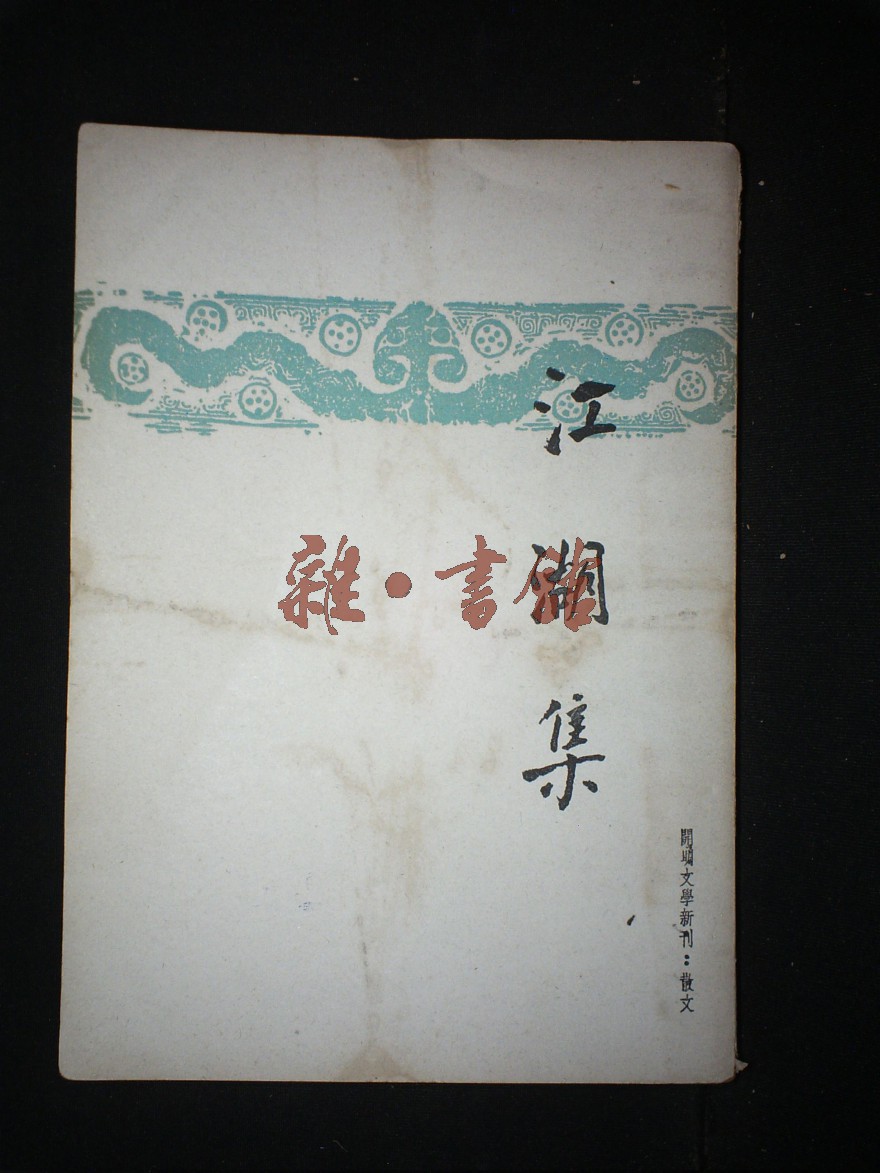 江湖集
開明文學新刊：散文
雜·书馆